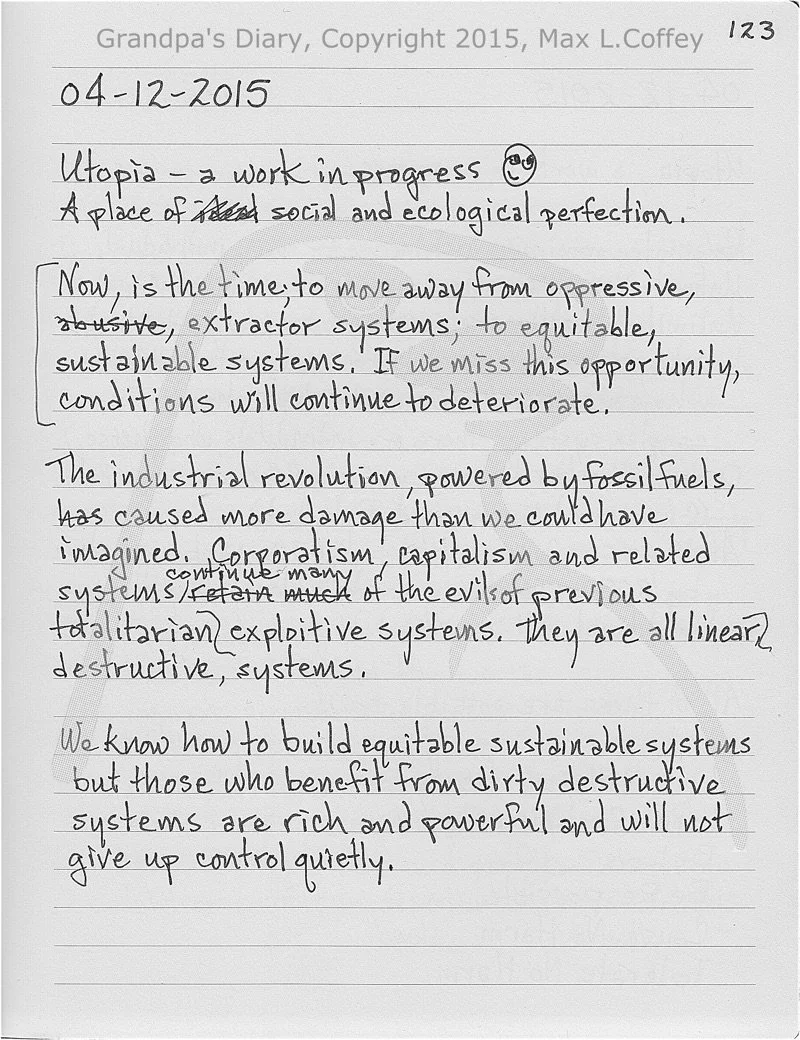 Grandpa's Diary, Copyright 2015, Max L.Coffey
123
04-12-2015
Utopia – a work in progress
A place of social and ecological perfection.
Now, is the time, to move away from oppressive,
abusive, extractor systems; to equitable,
sustainable systems. If we miss this opportunity,
conditions will continue to deteriorate.
The industrial revolution, powered by fossil fuels,
has caused more damage than we could have
imagined. Corporatism, capitalism and related
continue many
systems retain much of the evils of previous
totalitarian, exploitive systems. They are all linear,
destructive, systems.
We know how to build equitable sustainable systems
but those who benefit from dirty destructive
systems are rich and powerful and will not
give up control quietly.